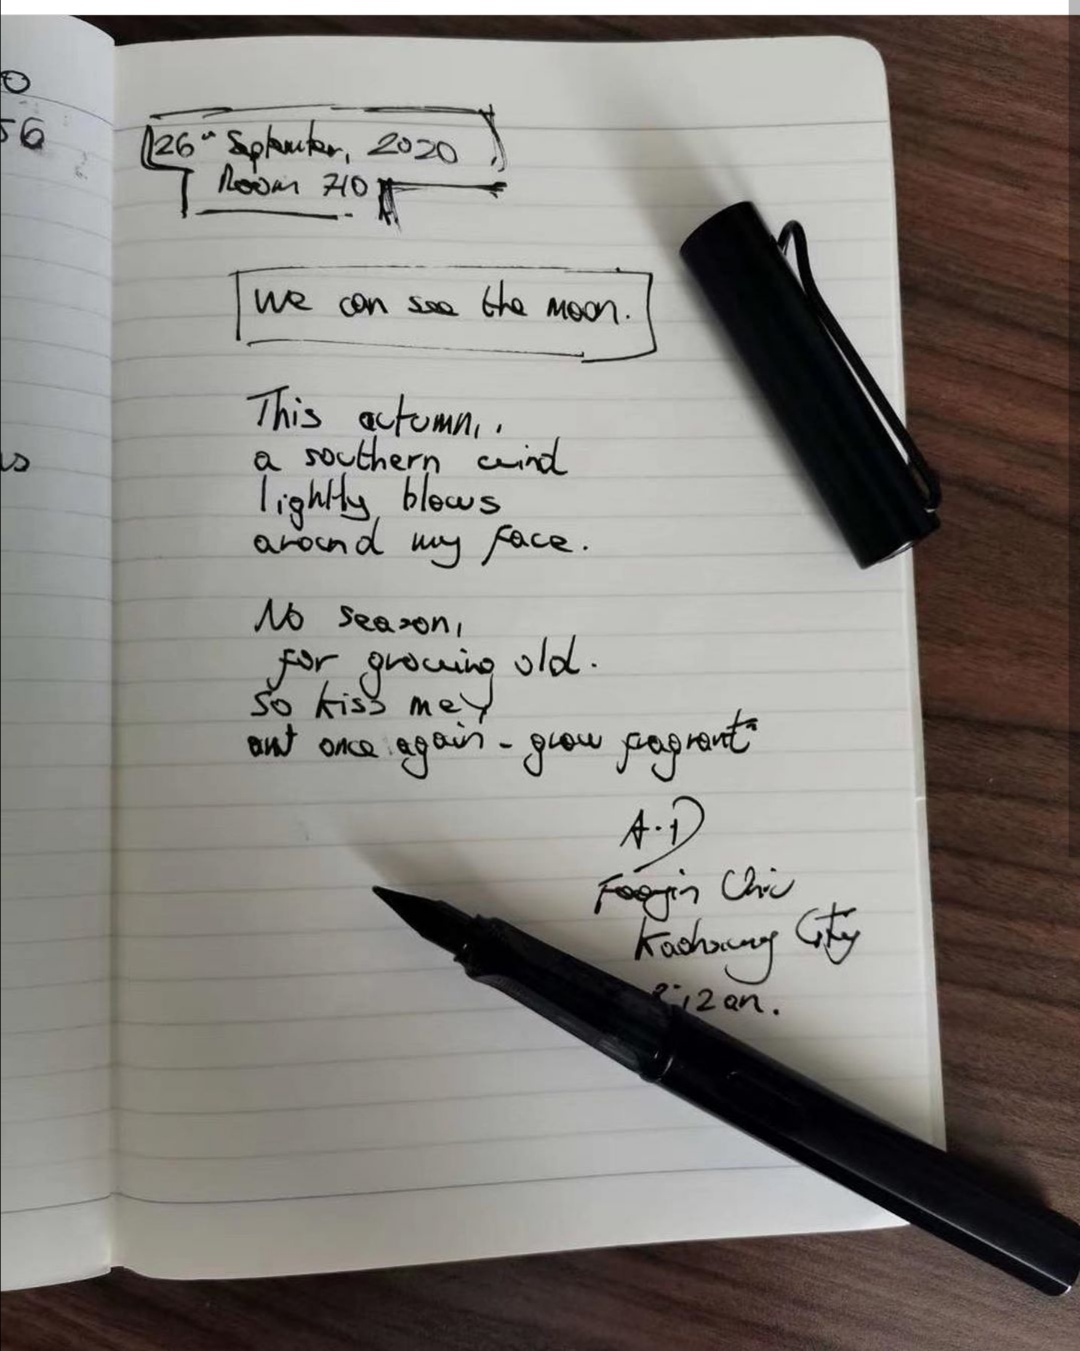 0
56
26th September, 2020
Room 710
We can see the moon.
This autumn,
a southern wind
lightly blows
around my face.
No season,
for growing old.
So kiss me,
and once again - grow fragrant
A.D
City